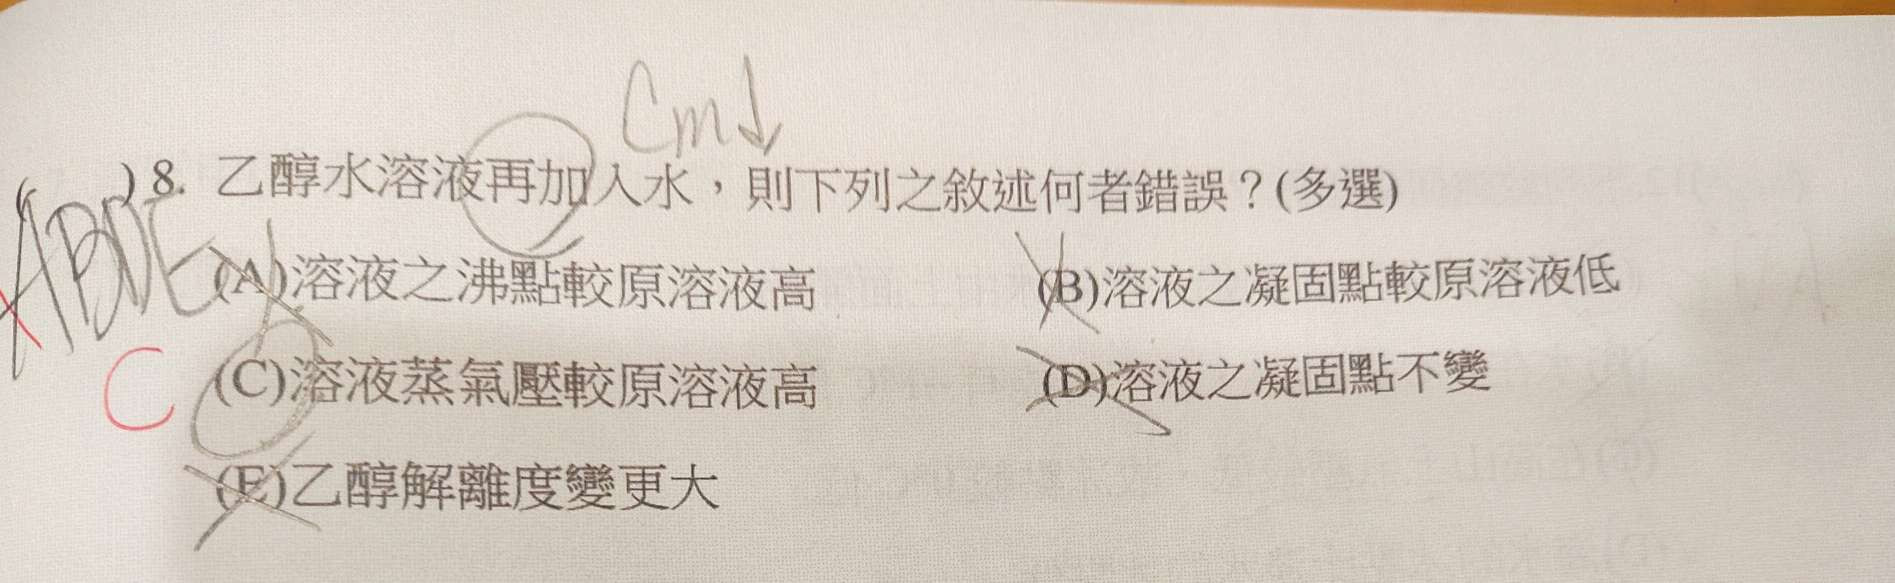 Cm↓
( ) 8. 乙醇水溶液再加入水，則下列之敘述何者錯誤？(多選)
ABDE
(A)溶液之沸點較原溶液高 (B)溶液之凝固點較原溶液低
C (C)溶液蒸氣壓較原溶液高 (D)溶液之凝固點不變
(E)乙醇解離度變更大